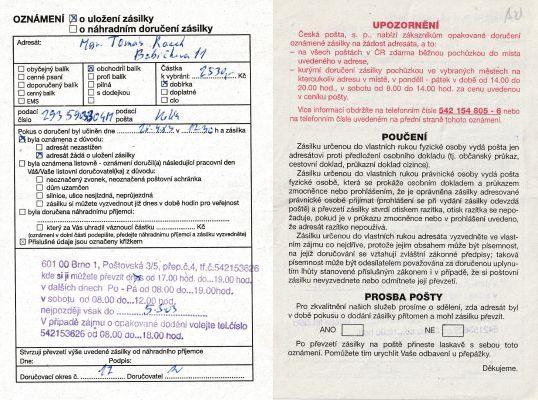 OZNÁMENÍ ☒ o uložení zásilky
☐ o náhradním doručení zásilky
Adresát: Mgr. Tomáš
11
☐ obyčejný balík ☒ obchodní balík Částka
☐ cenné psaní ☐ profi balík k vybrání: 2530,- Kč
☐ doporučený balík ☐ pilná ☒ dobírka
☐ cenný balík ☐ s dodejkou ☐ doplatné
☐ EMS ☐ clo
podací číslo podací pošta
Pokus o doručení byl učiněn dne v h a zásilka
☒ byla oznámena z důvodu:
☐ adresát nezastižen
☒ adresát žádá o uložení zásilky
☐ byla oznámena listovně - oznámení doručí(a) následující pracovní den
Váš/Vaše listovní doručovatel(ka) z důvodu:
☐ neoznačený zvonek, neoznačená poštovní schránka
☐ dům uzamčen
☐ silnice, ulice nesjízdná, neprůjezdná
☐ zásilku si můžete vyzvednout již dnes v době hodin pro veřejnost
☐ byla doručena náhradnímu příjemci:
☐ který za Vás uhradil váznoucí částku Kč
(oznámení v dolní části podepište, předejte náhradnímu příjemci a zásilku vyzvedněte)
☒ Příslušné údaje jsou označeny křížkem
601 00 Brno 1, Poštovská 3/5, přep.č.4, tf.č.542153626
kde si ji můžete převzít dnes od 17.00 hod. do...19.00 hod.
v dalších dnech Po - Pá od 08.00 do...19.00hod.
v sobotu od 08.00 do...12.00 hod.
nejpozději však do
V případě zájmu o opakované dodání volejte tel.číslo
542153626 od 08.00 do...18.00 hod.
Stvrzuji převzetí výše uvedené zásilky od náhradního příjemce
Dne: Podpis:
Doručovací okres č. 17 Doručovatel
UPOZORNĚNÍ
Česká pošta, s. p., nabízí zákazníkům opakované doručení
oznámené zásilky na žádost adresáta, a to:
– na všech poštách v ČR zdarma běžnou pochůzkou do místa
uvedeného v adrese,
– kurýrní doručení zásilky pochůzkou ve vybraných městech na
kteroukoliv adresu v místě, v pondělí - pátek v době od 14.00 do
20.00 hod., v sobotu od 8.00 do 14.00 hod. za cenu uvedenou
v ceníku pošty.
Více informací obdržíte na telefonním čísle 542 154 805 - 6 nebo
na telefonním čísle uvedeném na přední straně tohoto oznámení.
POUČENÍ
Zásilku určenou do vlastních rukou fyzické osoby vydá pošta jen
adresátovi proti předložení osobního dokladu (tj. občanský průkaz,
cestovní doklad, průkazní doklad cizince).
Zásilku určenou do vlastních rukou právnické osoby vydá pošta
fyzické osobě, která se prokáže osobním dokladem a průkazem
zmocněnce nebo prohlášením, že je oprávněna zásilky adresované
právnické osobě přijímat (prohlášení se při vydání zásilky odevzdá
poště) a převzetí zásilky stvrdí otiskem razítka, otisk razítka se nepo-
žaduje, pokud je v průkazu zmocněnce nebo v prohlášení uvedeno,
že adresát razítko nepoužívá.
Zásilku určenou do vlastních rukou adresáta vyzvedněte ve vlast-
ním zájmu co nejdříve, protože jejím obsahem může být písemnost,
na jejíž doručování se vztahují zvláštní zákonné předpisy; taková
písemnost může být odesílatelem považována za doručenou uplynu-
tím lhůty stanovené příslušným zákonem i v případě, že si poštovní
zásilku nevyzvednete nebo odmítnete její převzetí.
PROSBA POŠTY
Pro zkvalitnění našich služeb prosíme o sdělení, zda adresát byl
v době pokusu o dodání zásilky přítomen a mohl zásilku převzít.
ANO NE
Po převzetí zásilky na poště přineste laskavě s sebou toto
oznámení. Pomůžete tím urychlit Vaše odbavení u přepážky.
Děkujeme.